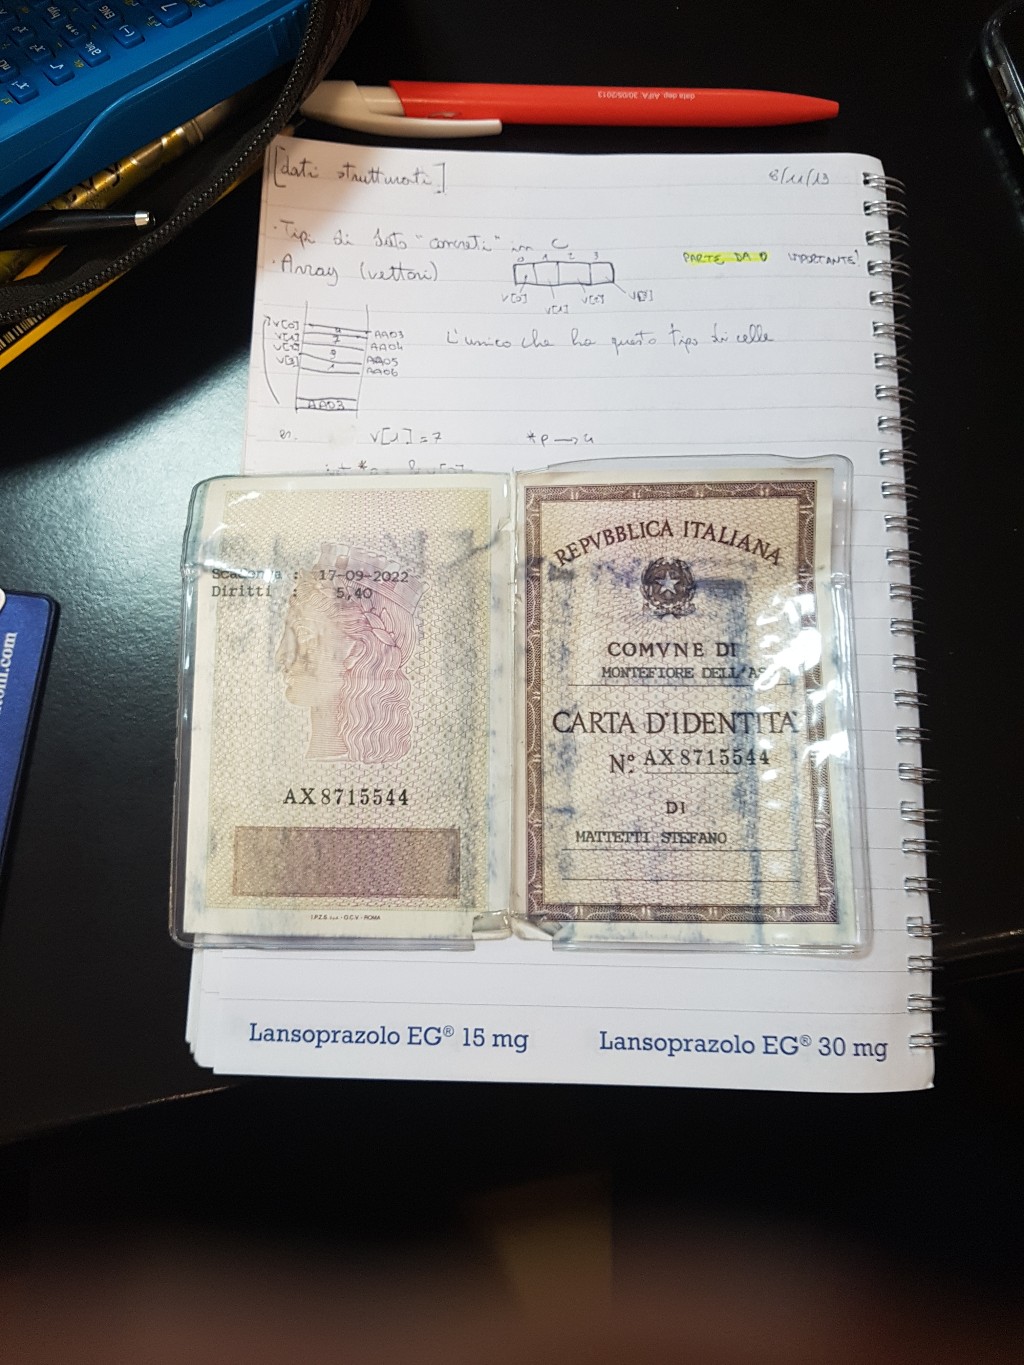 data dep. AIFA: 30/05/2013
[dati strutturati]
8/11/19
• Tipi di dato "concreti" in C
• Array (vettori)
0 1 2 3
V[0] V[1] V[2] V[3]
PARTE DA 0 IMPORTANTE!
V[0]
V[1] 7 AA03
V[2] AA04
V[3] AA05
AA06
L'unico che ha questo tipo di celle
AA03
es. V[1] = 7 *p → 4
Scadenza : 17-09-2022
Diritti : 5,40
AX 8715544
I.P.Z.S. S.p.A. - O.C.V. - ROMA
REPVBBLICA ITALIANA
COMVNE DI
MONTEFIORE DELL'AS
CARTA D'IDENTITA'
N° AX 8715544
DI
MATTETTI STEFANO
Lansoprazolo EG® 15 mg
Lansoprazolo EG® 30 mg